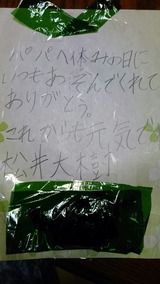 パパへ休みの日に
いつもあそんでくれて
ありがとう。
これからも元気で
松井大樹